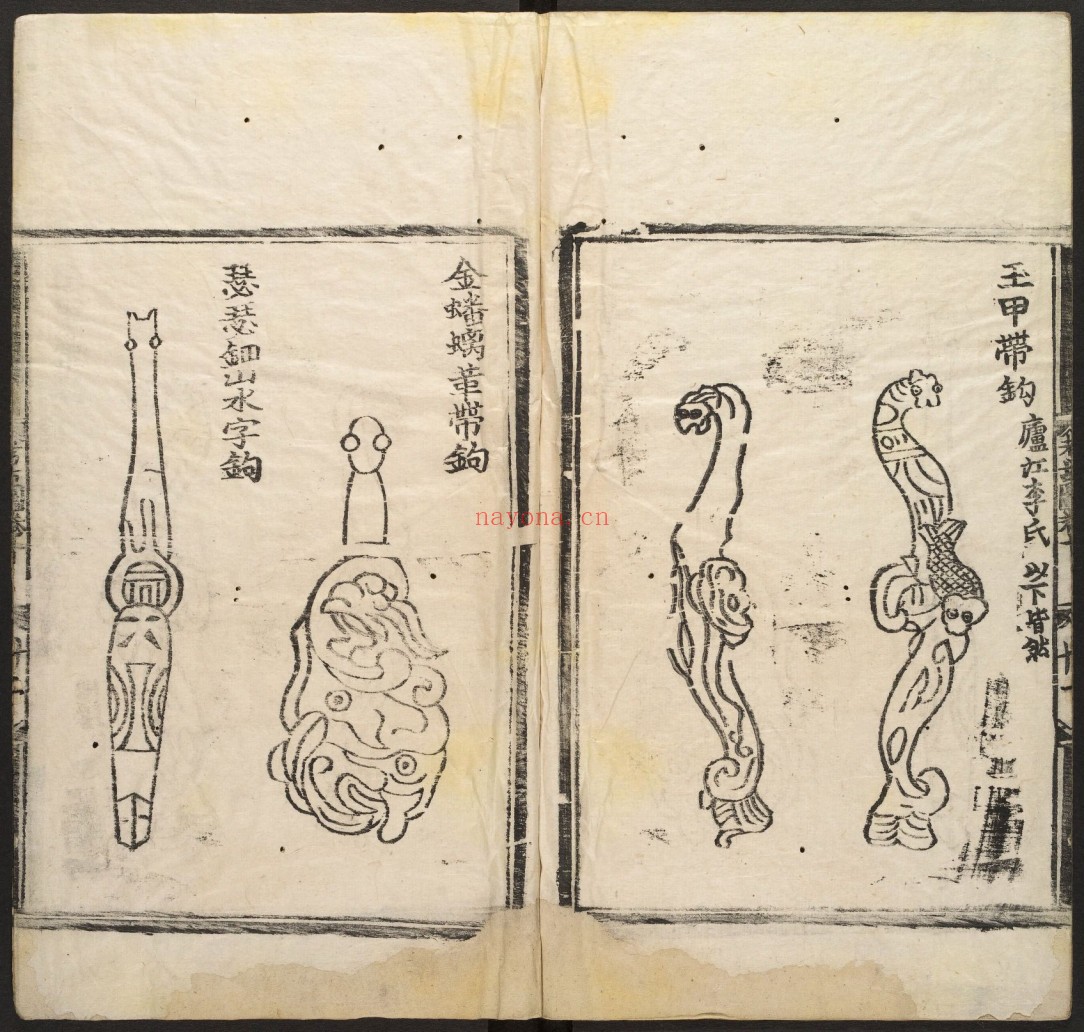 玉甲帶鈎
廬江李氏以下皆然
金蟠螭革帶鈎
瑟瑟鈿山水字鈎
nayona.cn